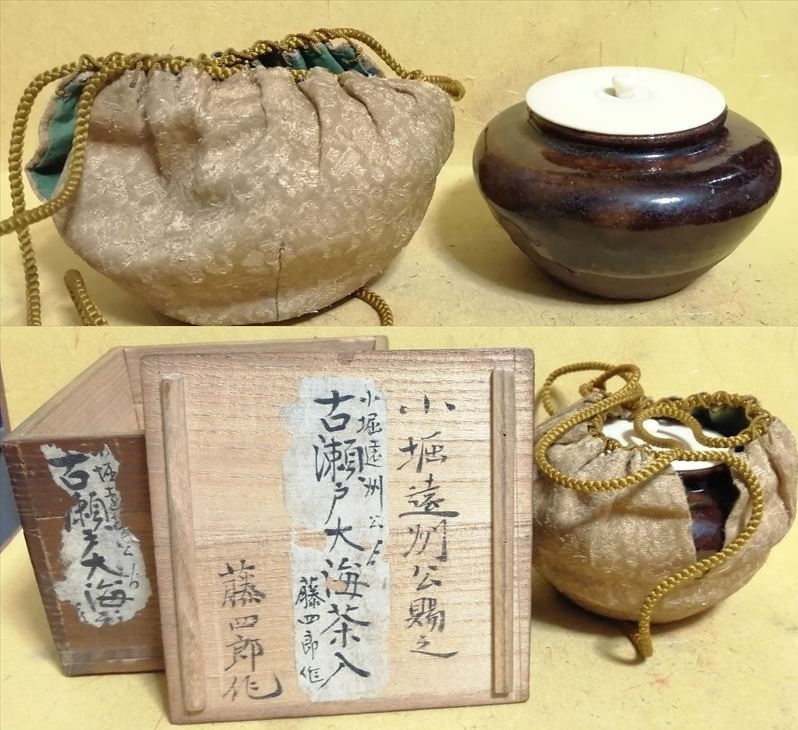 小堀遠州公賜之
小堀遠州公ゟ
古瀬戸大海茶入
藤四郎作
藤四郎作
古瀬戸大海